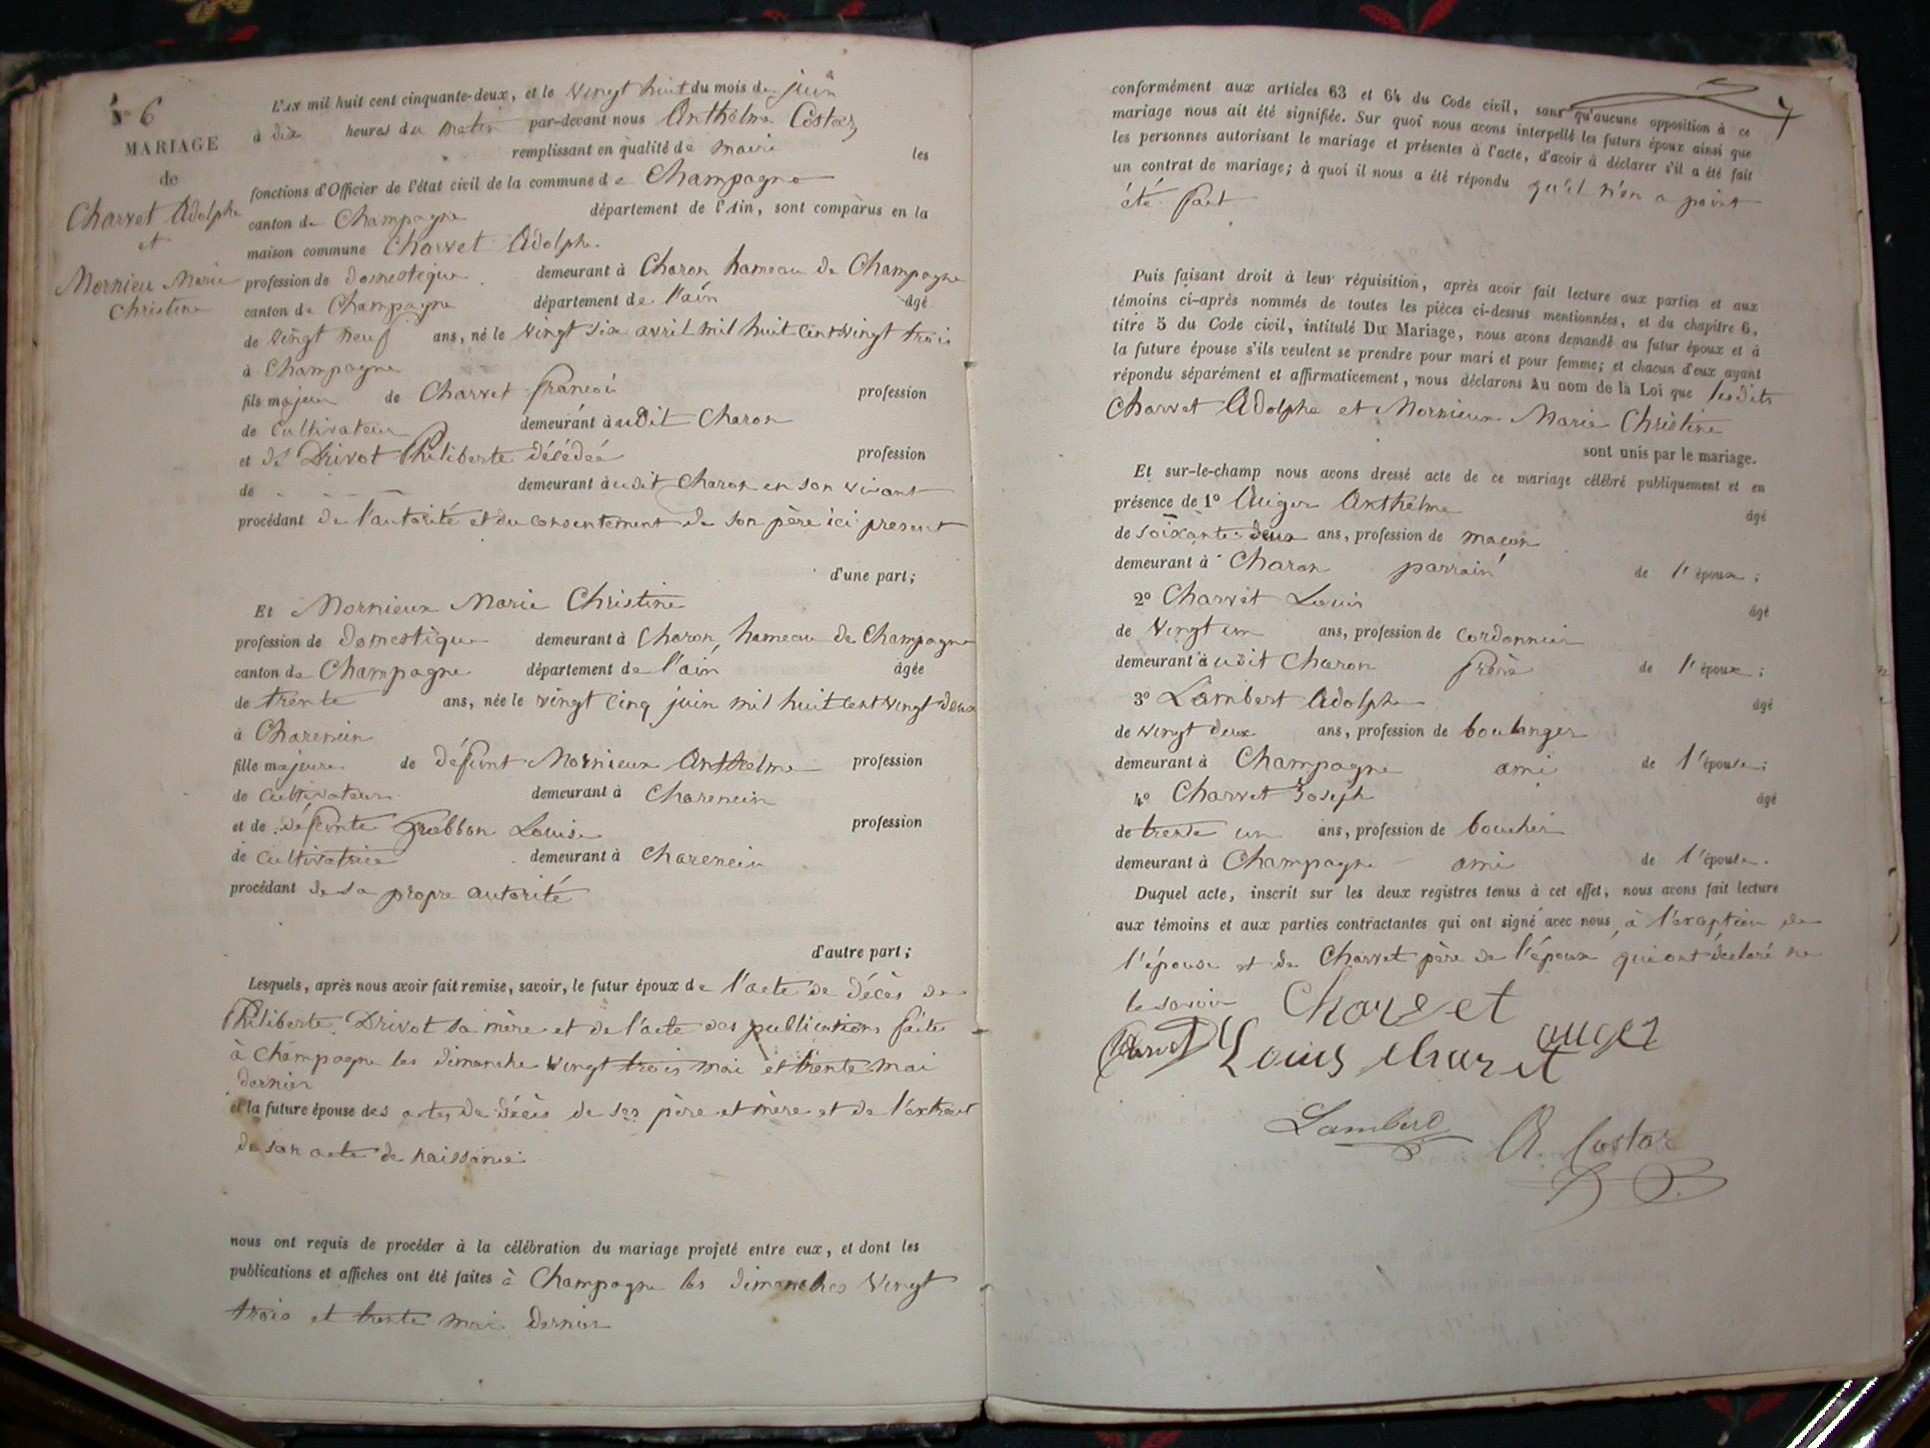 N° 6
MARIAGE
de
Charvet Adolphe
et
Mornieu Marie
Christine
L'AN mil huit cent cinquante-deux, et le vingt huit du mois de juin
à dix heures du matin par-devant nous Anthelme Costaz
remplissant en qualité de maire les
fonctions d'Officier de l'état civil de la commune de Champagne
canton de Champagne département de l'Ain, sont comparus en la
maison commune Charvet Adolphe
profession de domestique demeurant à Charon hameau de Champagne
canton de Champagne département de l'ain âgé
de vingt neuf ans, né le vingt six avril mil huit cent vingt trois
à Champagne
fils majeur de Charvet françoi profession
de cultivateur demeurant à udit Charon
et de Drivot Philiberte décédée profession
de demeurant à udit Charon en son vivant
procédant de l'autorité et du consentement de son père ici présent
d'une part;
Et Mornieux Marie Christine
profession de domestique demeurant à Charon, hameau de Champagne
canton de Champagne département de l'ain âgée
de trente ans, née le vingt cinq juin mil huit cent vingt deux
à Charencin
fille majeure de défunt Mornieux Anthelme profession
de cultivateur demeurant à Charencin
et de défunte Louise profession
de cultivatrice demeurant à Charencin
procédant de sa propre autorité
d'autre part;
Lesquels, après nous avoir fait remise, savoir, le futur époux de l'acte de décès de
Philiberte Drivot sa mère et de l'acte des publications faites
à Champagne les dimanche vingt trois mai et trente mai
dernier
et la future épouse des actes de décès de ses père et mère et de l'extrait
de son acte de naissance
nous ont requis de procéder à la célébration du mariage projeté entre eux, et dont les
publications et affiches ont été faites à Champagne les dimanches vingt
trois et trente mai dernier
conformément aux articles 63 et 64 du Code civil, sans qu'aucune opposition à ce
mariage nous ait été signifiée. Sur quoi nous avons interpellé les futurs époux ainsi que
les personnes autorisant le mariage et présentes à l'acte, d'avoir à déclarer s'il a été fait
un contrat de mariage; à quoi il nous a été répondu qu'il n'en a point
été fait
Puis faisant droit à leur réquisition, après avoir fait lecture aux parties et aux
témoins ci-après nommés de toutes les pièces ci-dessus mentionnées, et du chapitre 6,
titre 5 du Code civil, intitulé Du Mariage, nous avons demandé au futur époux et à
la future épouse s'ils veulent se prendre pour mari et pour femme; et chacun d'eux ayant
répondu séparément et affirmativement, nous déclarons Au nom de la Loi que lesdits
Charvet Adolphe et Mornieux Marie Christine
sont unis par le mariage.
Et sur-le-champ nous avons dressé acte de ce mariage célébré publiquement et en
présence de 1° Auger Anthelme âgé
de soixante-deux ans, profession de maçon
demeurant à Charon parrain de l'époux;
2° Charvet Louis âgé
de vingt un ans, profession de cordonnier
demeurant à udit Charon frère de l'époux;
3° Lambert Adolphe âgé
de vingt deux ans, profession de boulanger
demeurant à Champagne ami de l'épouse;
4° Charvet Joseph âgé
de trente un ans, profession de boucher
demeurant à Champagne ami de l'épouse.
Duquel acte, inscrit sur les deux registres tenus à cet effet, nous avons fait lecture
aux témoins et aux parties contractantes qui ont signé avec nous, à l'exeption de
l'épouse et de Charvet père de l'époux qui ont déclaré ne
le savoir Charvet
Charvet Louis Charvet auger
Lambert A. Costaz